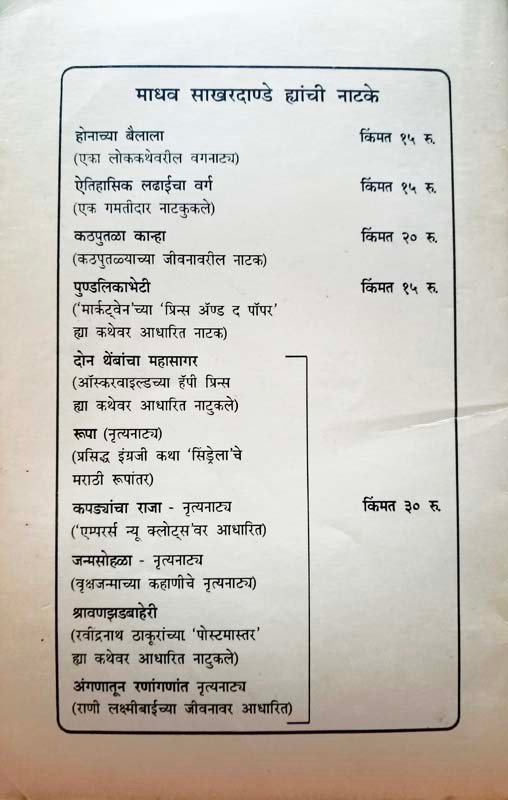 माधव साखरदाण्डे ह्यांची नाटके
होनाच्या बैलाला किंमत १५ रु.
(एका लोककथेवरील वगनाट्य)
ऐतिहासिक लढाईचा वर्ग किंमत १५ रु.
(एक गमतीदार नाटकुकले)
कठपुतळा कान्हा किंमत २० रु.
(कठपुतळ्याच्या जीवनावरील नाटक)
पुण्डलिकाभेटी किंमत १५ रु.
('मार्कट्वेन'च्या 'प्रिन्स ॲण्ड द पॉपर'
ह्या कथेवर आधारित नाटक)
दोन थेंबांचा महासागर
(ऑस्करवाइल्डच्या हॅपी प्रिन्स
ह्या कथेवर आधारित नाटुकले)
रूपा (नृत्यनाट्य)
(प्रसिद्ध इंग्रजी कथा 'सिंड्रेला'चे
मराठी रूपांतर)
कपड्यांचा राजा - नृत्यनाट्य किंमत ३० रु.
('एम्परर्स न्यू क्लोट्स'वर आधारित)
जन्मसोहळा - नृत्यनाट्य
(वृक्षजन्माच्या कहाणीचे नृत्यनाट्य)
श्रावणझडबाहेरी
(रवींद्रनाथ ठाकूरांच्या 'पोस्टमास्तर'
ह्या कथेवर आधारित नाटुकले)
अंगणातून रणांगणांत नृत्यनाट्य
(राणी लक्ष्मीबाईच्या जीवनावर आधारित)